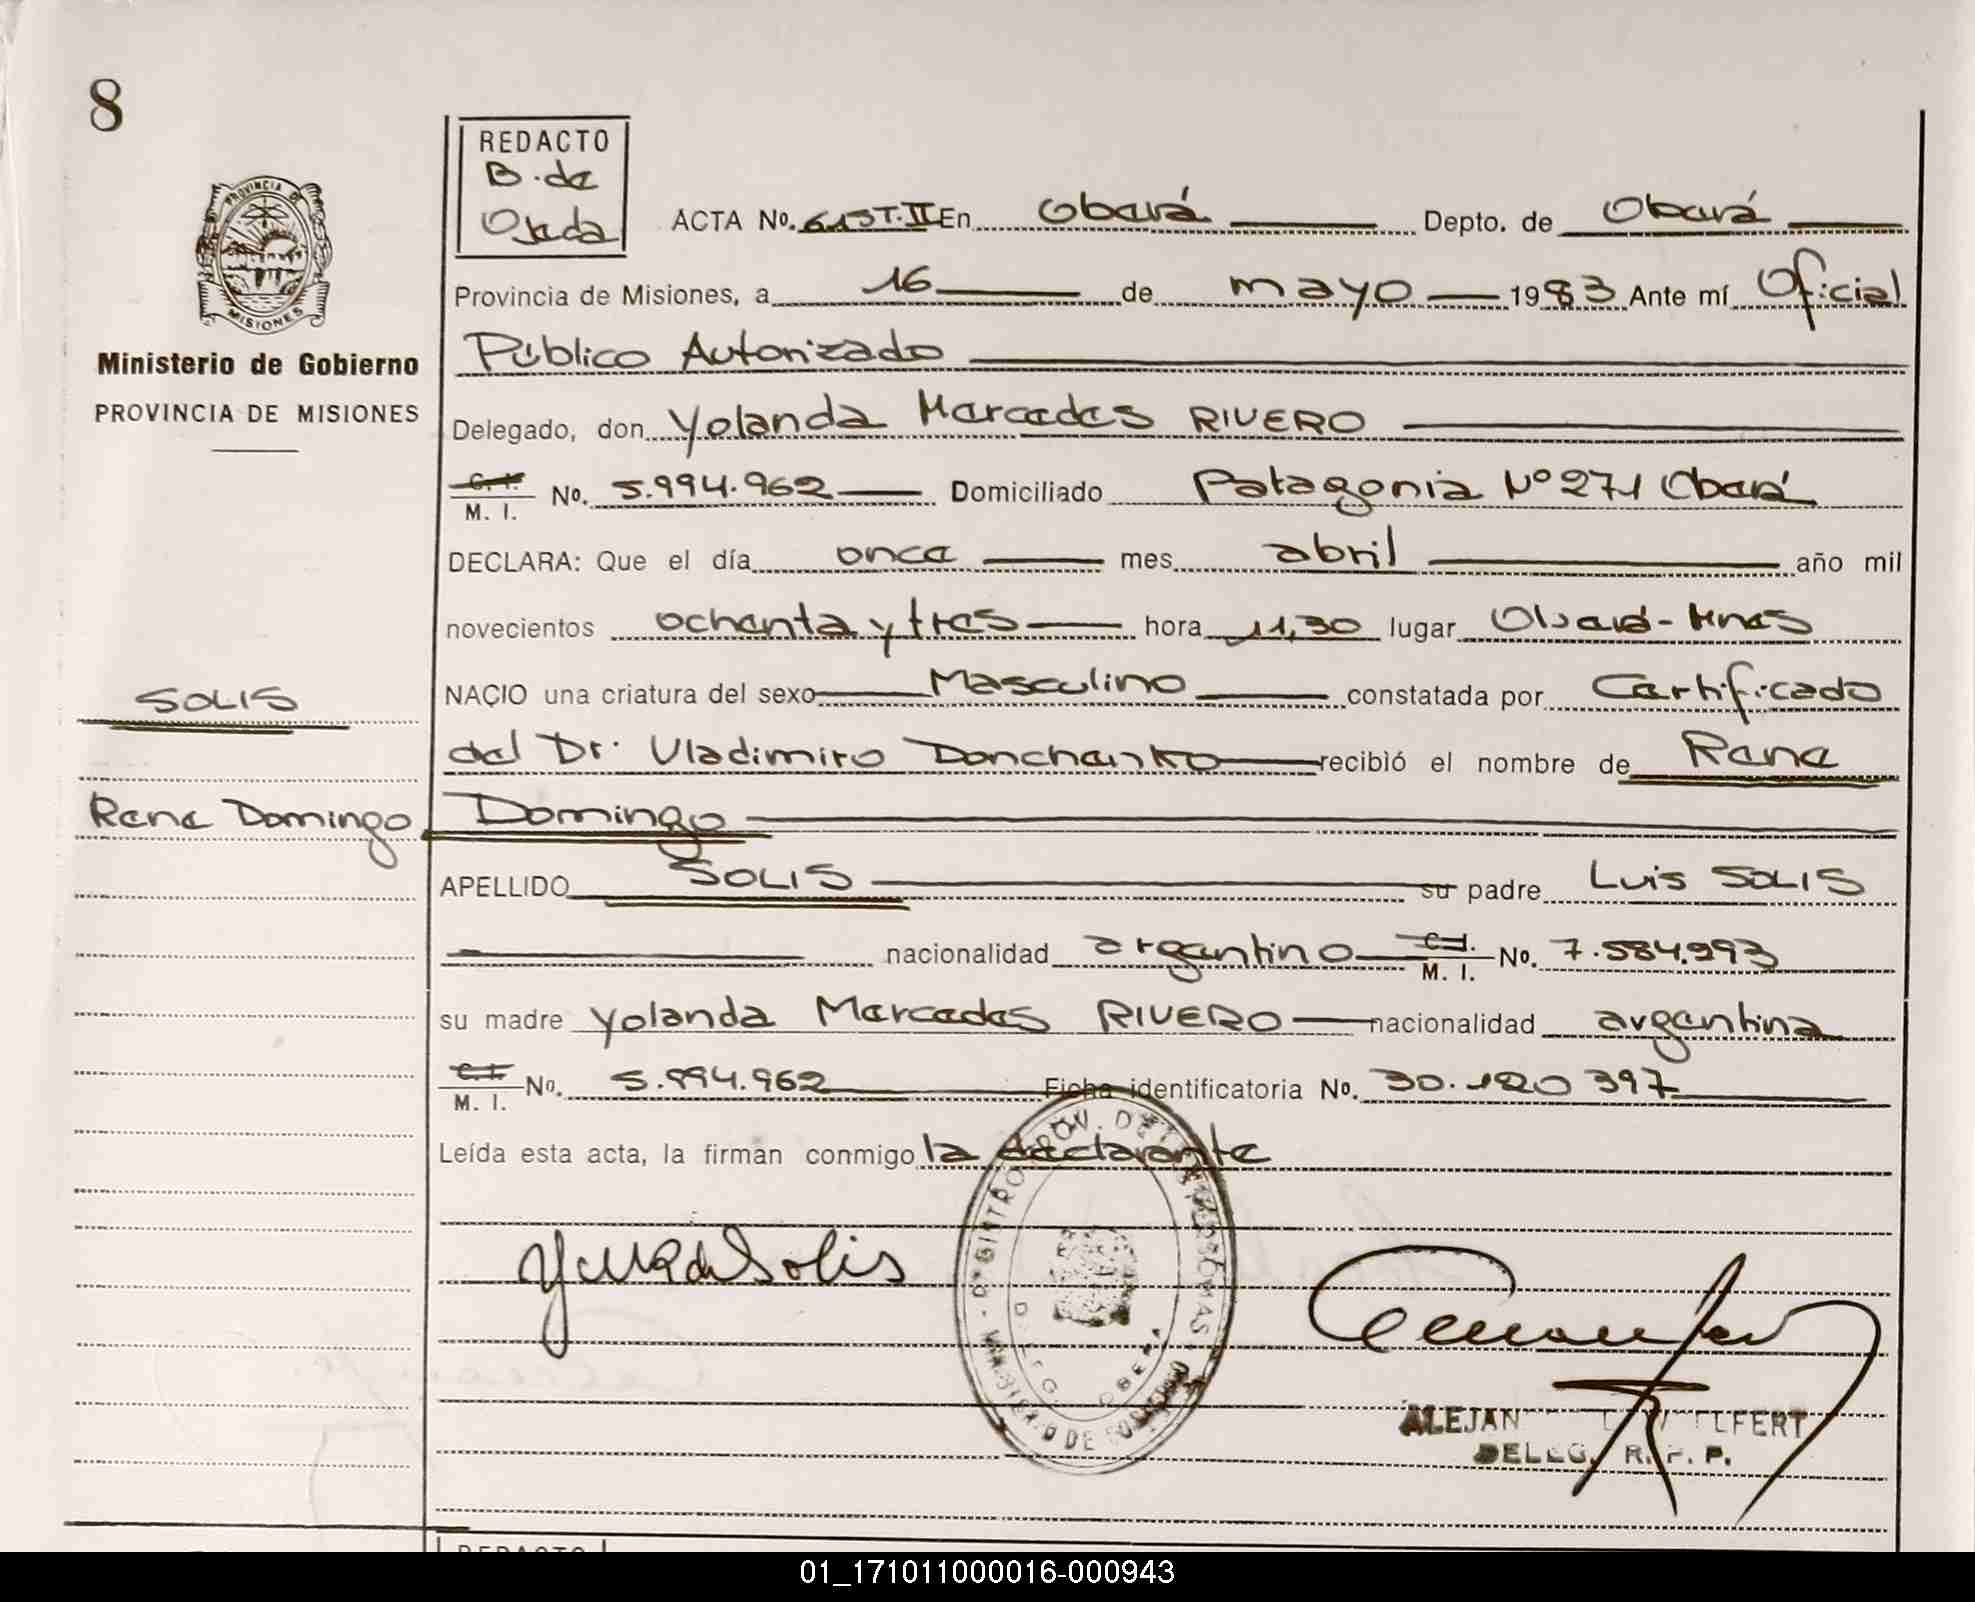 8
REDACTO
B. de
Ojeda
ACTA No. 613 T. II En Oberá Depto. de Oberá
PROVINCIA DE
MISIONES
Provincia de Misiones, a 16 de mayo 1983 Ante mí Oficial
Ministerio de Gobierno
PROVINCIA DE MISIONES
Público Autorizado
Delegado, don Yolanda Mercedes RIVERO
C. I.
M. I. No. 5.994.962 Domiciliado Patagonia Nº 271 Oberá
DECLARA: Que el día once mes abril año mil
novecientos ochenta y tres hora 11,30 lugar Oberá-Mnes
SOLIS
NACIO una criatura del sexo Masculino constatada por Certificado
del Dr. Vladimiro Donchenko recibió el nombre de Rene
Rene Domingo
Domingo
APELLIDO SOLIS su padre Luis SOLIS
nacionalidad argentino C. I.
M. I. No. 7.584.993
su madre Yolanda Mercedes RIVERO nacionalidad argentina
C. I.
M. I. No. 5.994.962 Ficha identificatoria No. 30.120 397
Leída esta acta, la firman conmigo la declarante
Y M R de Solis
PROV. DE LAS PERSONAS
DELEG. OBERA
MINISTERIO DE GOBIERNO
DELEG. R. P. P.
REDACTO
01_171011000016-000943